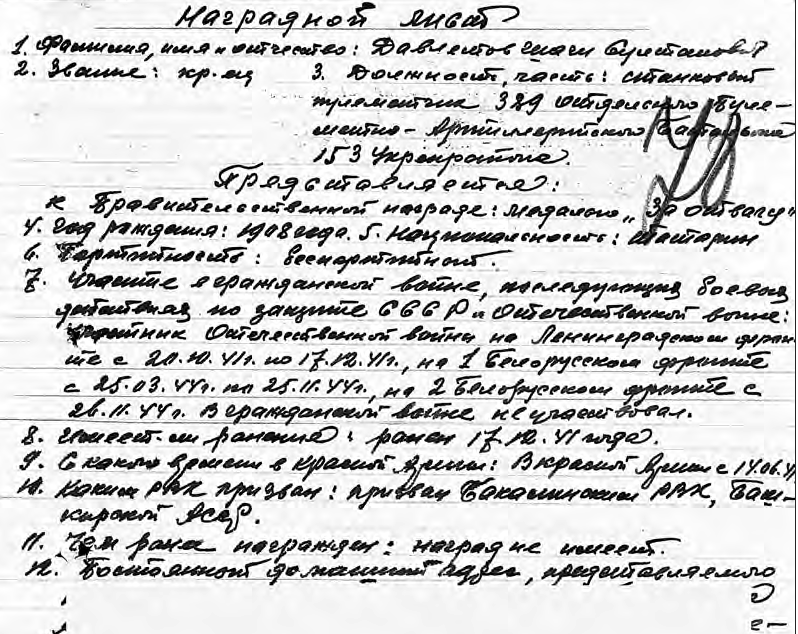 Наградной лист
1. Фамилия, имя и отчество: Давлетов Султанович
2. Звание: кр-ец 3. Должность, часть: станковый
пулеметчик 329 отдельного Пуле-
метно-Артиллерийского Батальона
153 Укрепрайона.
Представляется:
к Правительственной награде: медалью „За отвагу"
4. Год рождения: 1908 года. 5. Национальность: Татарин
6. Партийность: беспартийный.
7. Участие в гражданской войне, последующих боевых
действиях по защите СССР и Отечественной войне:
участник Отечественной войны на Ленинградском фрон-
те с 20.10.41г. по 17.12.41г., на 1 Белорусском фронте
с 25.03.44г. по 25.11.44г., на 2 Белорусском фронте с
26.11.44г. В гражданской войне не участвовал.
8. Имеет ли ранения: ранен 17.12.41 года.
9. С какого времени в Красной Армии: В Красной Армии с 14.06.41
10. Каким РВК призван: призван Бакалинским РВК, Баш-
кирской АССР.
11. Чем ранее награжден: наград не имеет.
12. Постоянный домашний адрес, представляемого